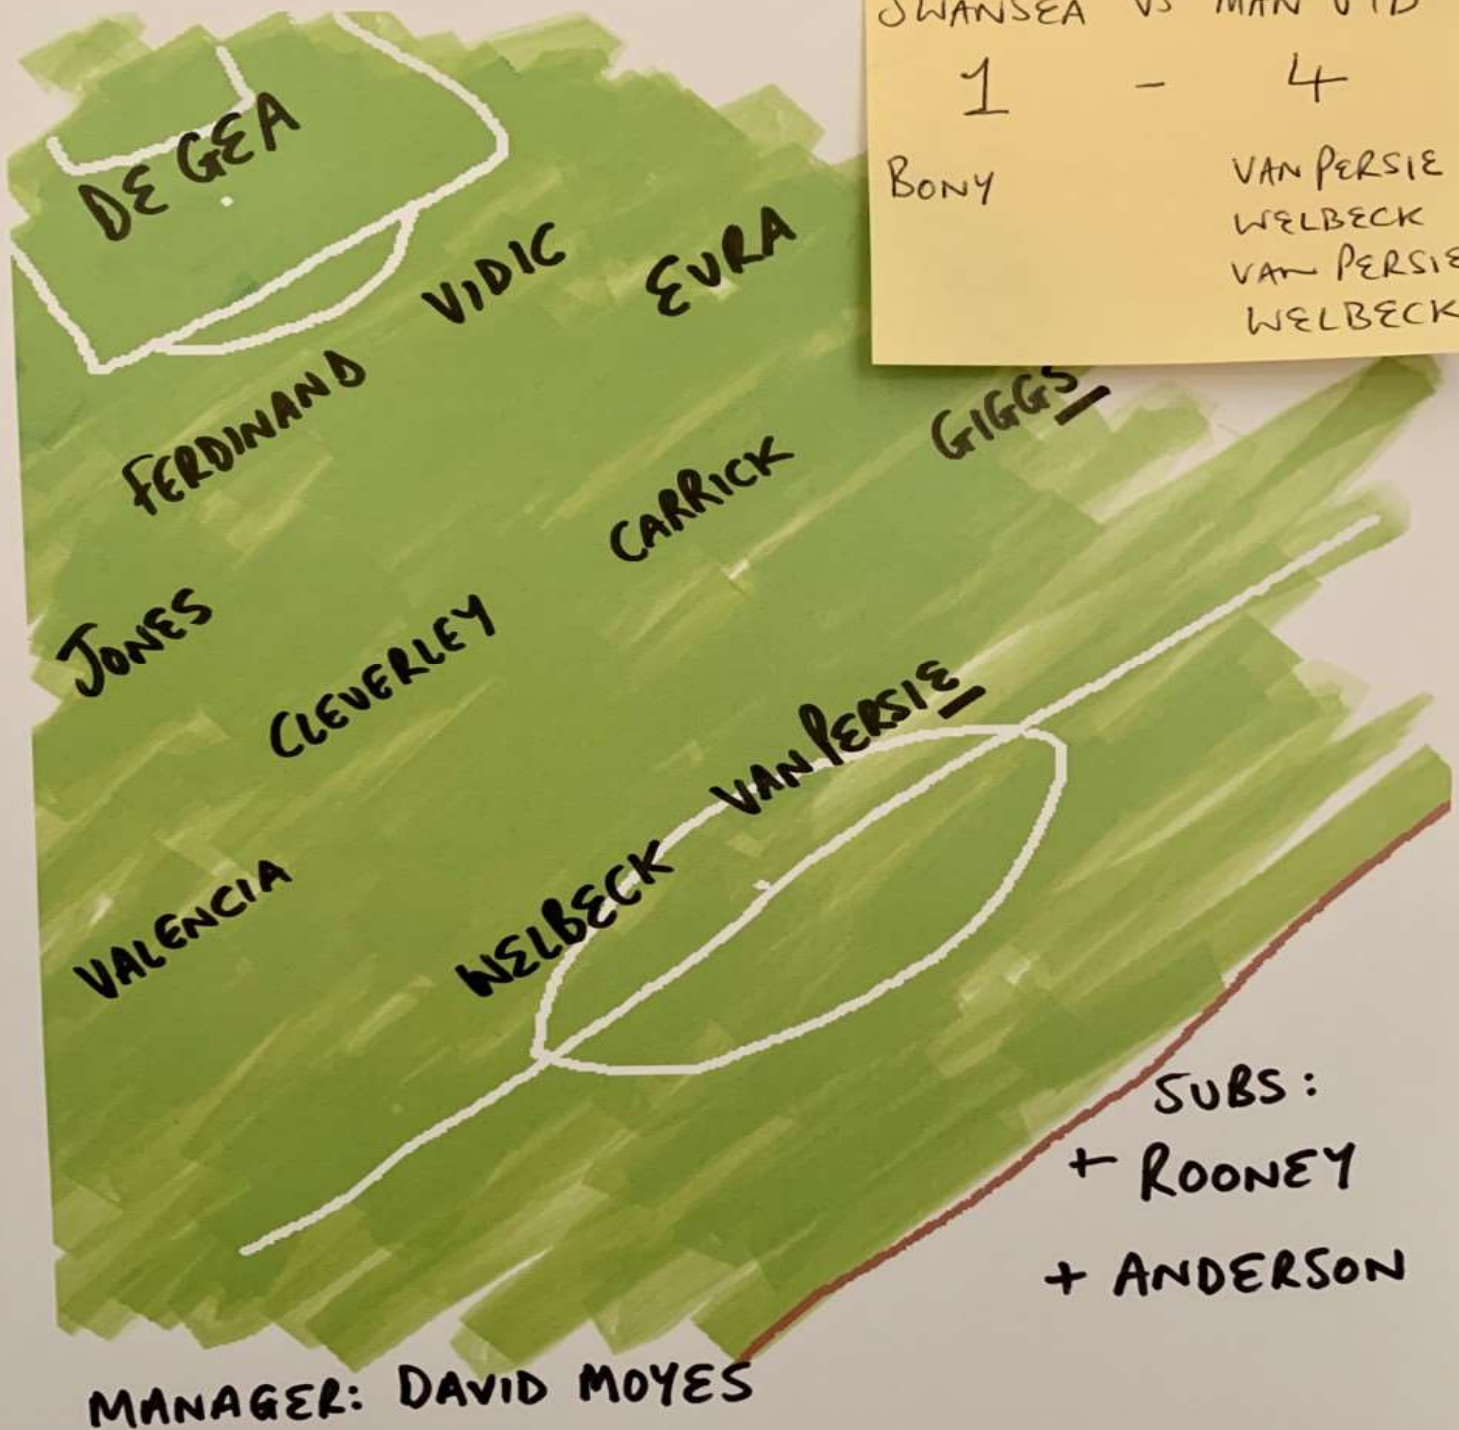 SWANSEA VS MAN UTD
1 - 4
BONY
VAN PERSIE
WELBECK
VAN PERSIE
WELBECK
DE GEA
VIDIC
EVRA
FERDINAND
GIGGS
CARRICK
JONES
CLEVERLEY
VAN PERSIE
VALENCIA
WELBECK
SUBS:
+ ROONEY
+ ANDERSON
MANAGER: DAVID MOYES